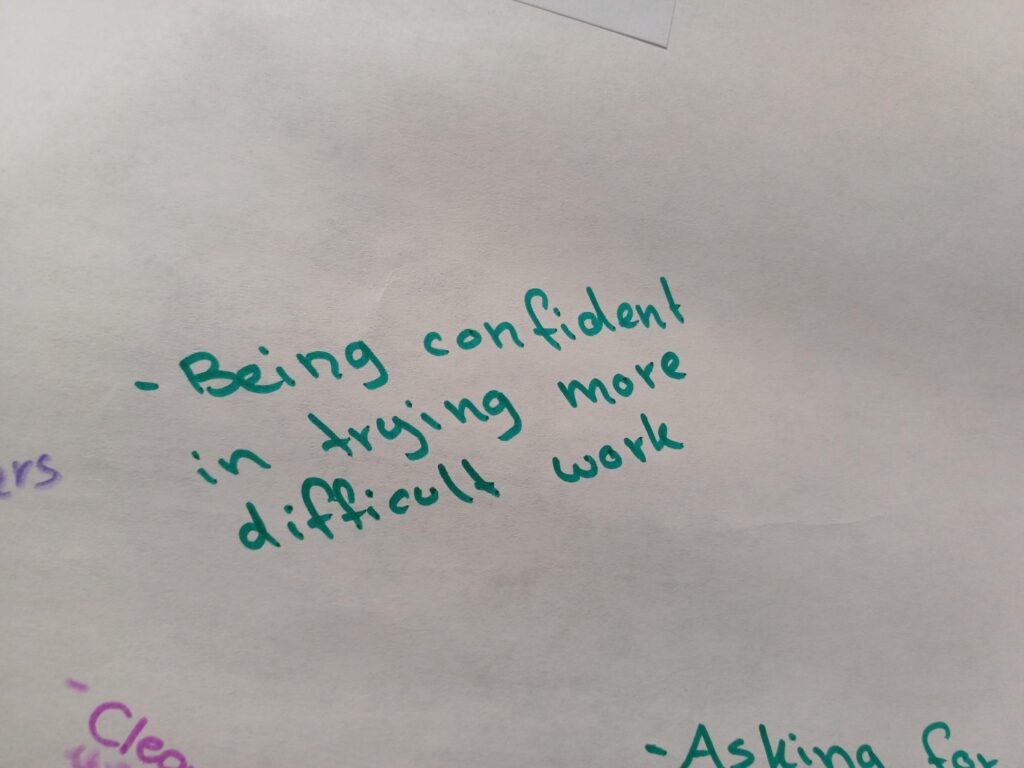 - Being confident
in trying more
difficult work
- Asking for